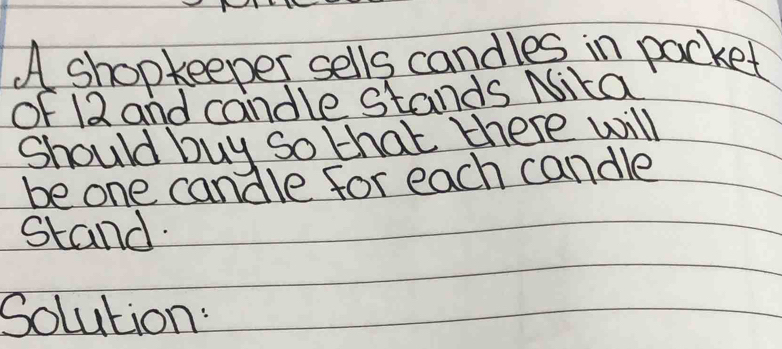 A shopkeeper sells candles in packet
of 12 and candle stands Nita
should buy so that there will
be one candle for each candle
stand.
Solution: